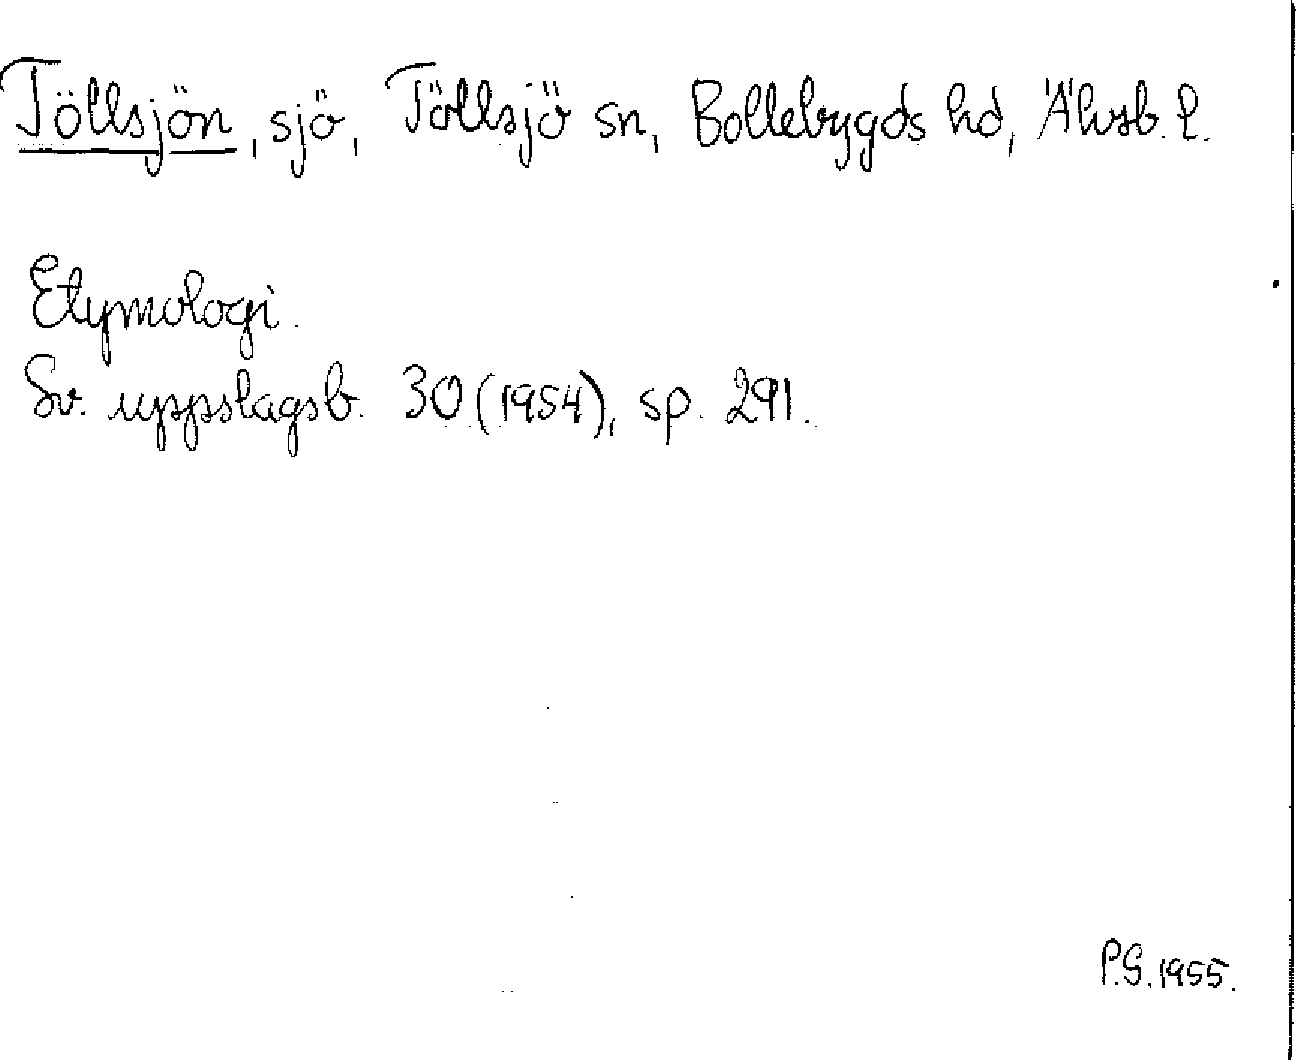 Töllsjön, sjö, Töllsjö sn, Bollebygds hd, Älvsb. l.
Etymologi.
Sv. uppslagsb. 30 (1954), sp. 291.
P.G. 1955.